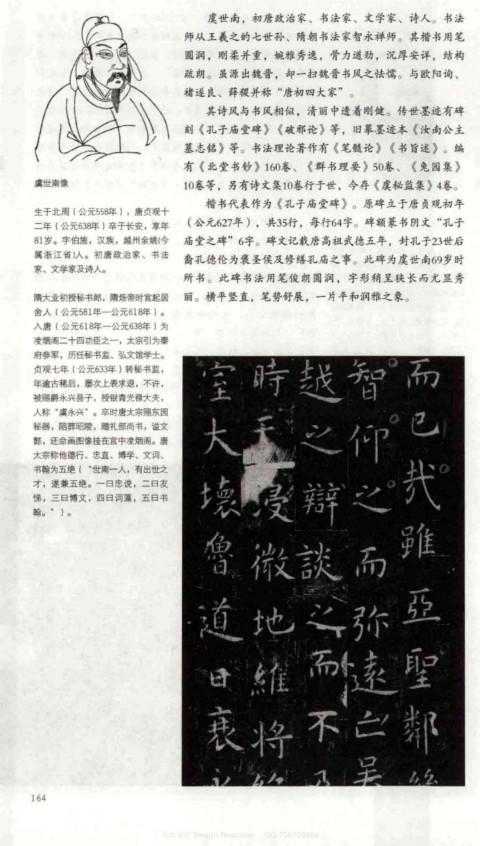 虞世南，初唐政治家、书法家、文学家、诗人。书法
师从王羲之的七世孙、隋朝书法家智永禅师。其楷书用笔
圆润，刚柔并重，婉雅秀逸，骨力遒劲，沉厚安详，结构
疏朗。虽源出魏晋，却一扫魏晋书风之怯懦。与欧阳询、
褚遂良、薛稷并称“唐初四大家”。
其诗风与书风相似，清丽中透着刚健。传世墨迹有碑
刻《孔子庙堂碑》《破邪论》等，旧摹墨迹本《汝南公主
墓志铭》等。书法理论著作有《笔髓论》《书旨述》。编
有《北堂书钞》160卷、《群书理要》50卷、《兔园集》
10卷等，另有诗文集10卷行于世，今存《虞秘监集》4卷。
楷书代表作为《孔子庙堂碑》。原碑立于唐贞观初年
（公元627年），共35行，每行64字。碑额篆书阴文“孔子
庙堂之碑”6字。碑文记载唐高祖武德五年，封孔子23世后
裔孔德伦为褒圣侯及修缮孔庙之事。此碑为虞世南69岁时
所书。此碑书法用笔俊朗圆润，字形稍呈狭长而尤显秀
丽。横平竖直，笔势舒展，一片平和润雅之象。
虞世南像
生于北周（公元558年），唐贞观十
二年（公元638年）卒于长安，享年
81岁。字伯施，汉族，越州余姚(今
属浙江省)人。初唐政治家、书法
家、文学家及诗人。
隋大业初授秘书郎，隋炀帝时官起居
舍人（公元581年—公元618年）。
入唐（公元618年—公元638年）为
凌烟阁二十四功臣之一，太宗引为秦
府参军，历任秘书监、弘文馆学士。
贞观七年（公元633年）转秘书监，
年逾古稀后，屡次上表求退，不许，
被赐爵永兴县子，授银青光禄大夫，
人称“虞永兴”。卒时唐太宗赐东园
秘器，陪葬昭陵，赠礼部尚书，谥文
懿，还命画图像挂在宫中凌烟阁。唐
太宗称他德行、忠直、博学、文词、
书翰为五绝（“世南一人，有出世之
才，遂兼五绝。一曰忠谠，二曰友
悌，三曰博文，四曰词藻，五曰书
翰。”）。
而已哉雖亞聖鄰
智仰之而弥遠亡吴
越之辯談之而不
時天浸微地維将
室大壞魯道日衰
164